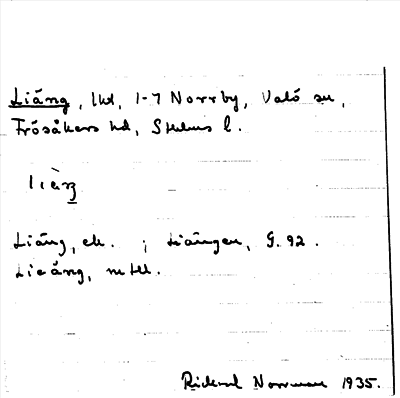 Liäng, lkd, 1-7 Norrby, Valö sn,
Frösåkers hd, Sthlms l.
Liäng, ek. ; Liängen, G. 92.
Lieäng, mtll.
Rickard Norrman 1935.